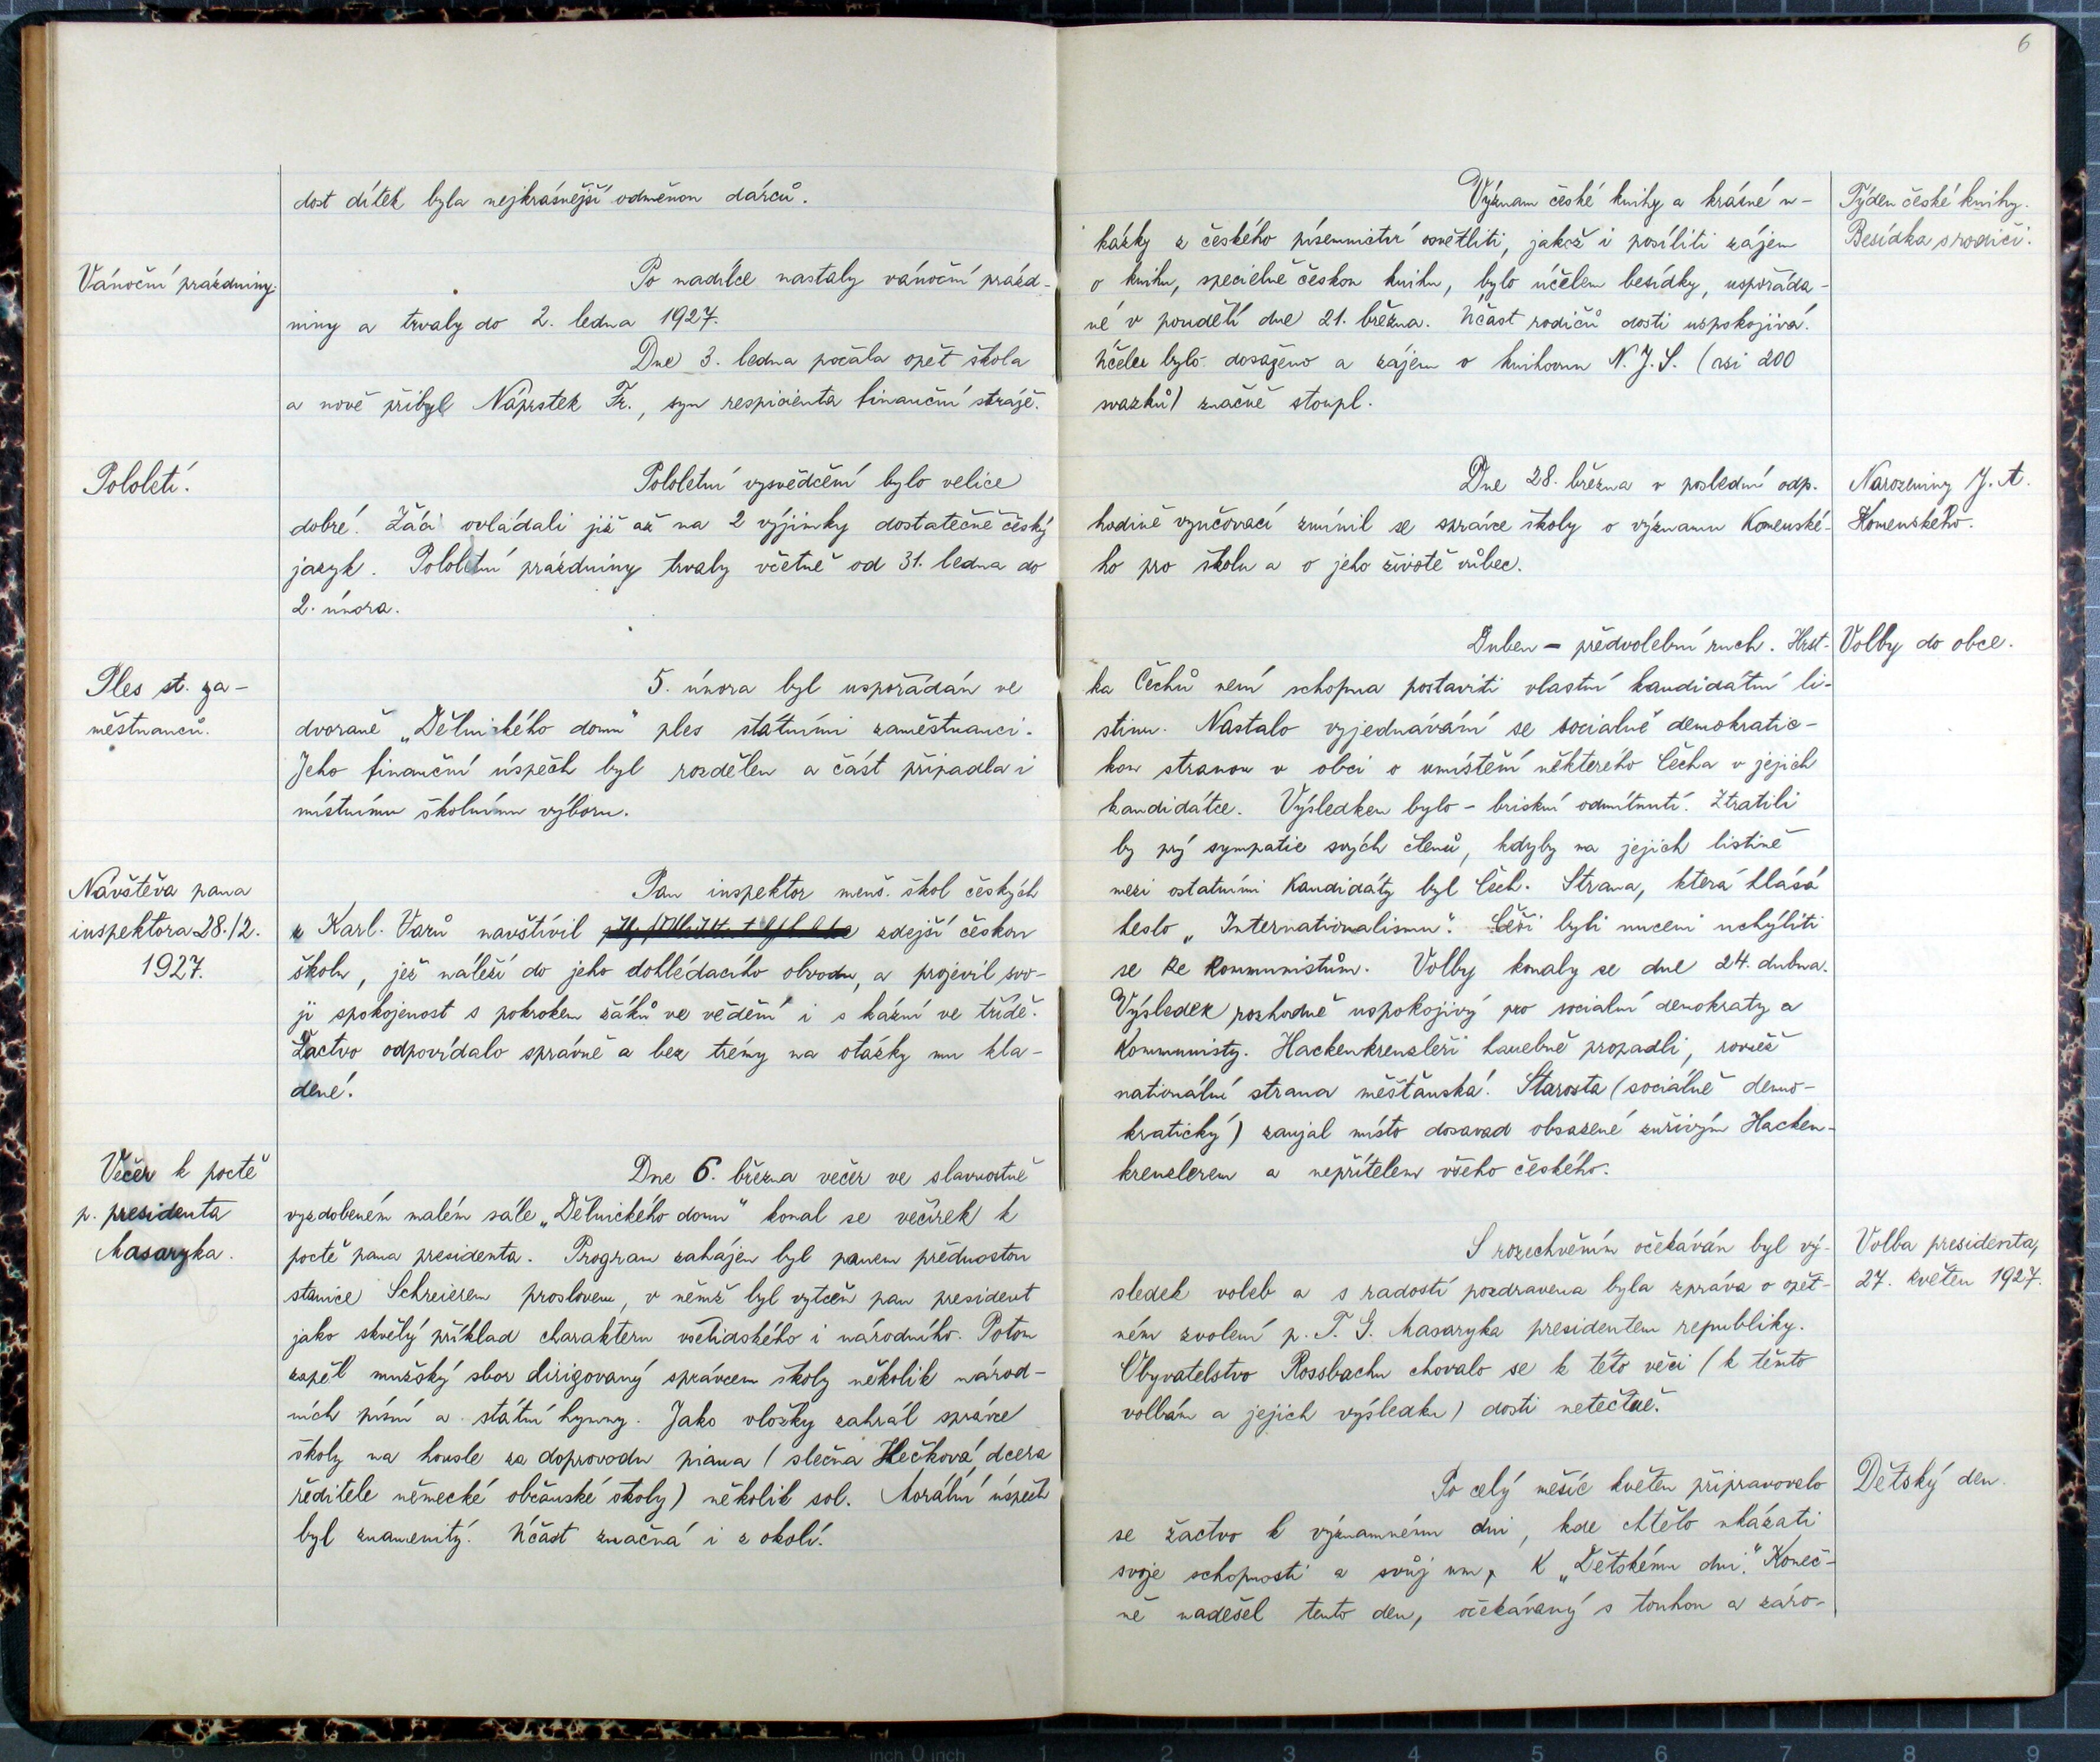 dost dítek byla nejkrásnější odměnou dárců.
Vánoční prázdniny.
Po nadílce nastaly vánoční prázd-
niny a trvaly do 2. ledna 1927.
Dne 3. ledna počala opět škola
a nově přibyl Náprstek Fr., syn respicienta finanční stráže.
Pololetí.
Pololetní vysvědčení bylo velice
dobré! Žáci ovládali již až na 2 výjimky dostatečně český
jazyk. Pololetní prázdniny trvaly včetně od 31. ledna do
2. února.
Ples st. za-
městnanců.
5. února byl uspořádán ve
dvoraně „Dělnického domu" ples státními zaměstnanci.
Jeho finanční úspěch byl rozdělen a část připadla i
místnímu školnímu výboru.
Návštěva pana
inspektora 28./2.
1927.
Pan inspektor menš. škol českých
z Karl. Varů navštívil zdejší českou
školu, jež náleží do jeho dohlédacího obvodu, a projevil svo-
ji spokojenost s pokrokem žáků ve vědění i s kázní ve třídě.
Žactvo odpovídalo správně a bez trémy na otázky mu kla-
dené.
Večer k poctě
p. presidenta
Masaryka.
Dne 6. března večer ve slavnostně
vyzdobeném malém sále „Dělnického domu" konal se večírek k
poctě pana presidenta. Program zahájen byl panem přednostou
stanice Schreierem proslovem, v němž byl vytčen pan president
jako skvělý příklad charakteru všelidského i národního. Potom
zapěl mužský sbor dirigovaný správcem školy několik národ-
ních písní a státní hymny. Jako vložky zahrál správce
školy na housle za doprovodu piana (slečna Hečková, dcera
ředitele německé občanské školy) několik sol. Morální úspěch
byl znamenitý. Účast značná i z okolí.
6
Týden české knihy.
Besídka s rodiči.
Význam české knihy a krásné u-
kázky z českého písemnictví osvětliti, jakož i posíliti zájem
o knihu, specielně českou knihu, bylo účelem besídky, uspořáda-
né v pondělí dne 21. března. Účast rodičů dosti uspokojivá.
Účelu bylo dosaženo a zájem o knihovnu N. J. S. (asi 200
svazků) značně stoupl.
Narozeniny J. A.
Komenského.
Dne 28. března v poslední odp.
hodině vyučovací zmínil se správce školy o významu Komenské-
ho pro školu a o jeho životě vůbec.
Volby do obce.
Duben – předvolební ruch. Hrst-
ka Čechů není schopna postaviti vlastní kandidátní li-
stinu. Nastalo vyjednávání se sociálně demokratic-
kou stranou v obci o umístění některého Čecha v jejich
kandidátce. Výsledkem bylo – briskní odmítnutí. Ztratili
by prý sympatie svých členů, kdyby na jejich listině
mezi ostatními kandidáty byl Čech. Strana, která hlásá
heslo „Internationalismu". Češi byli nuceni uchýliti
se ke kommunistům. Volby konaly se dne 24. dubna.
Výsledek rozhodně uspokojivý pro sociální demokraty a
kommunisty. Hackenkreuzleři hanebně propadli, rovněž
nationální strana měšťanská. Starosta (sociálně demo-
kratický) zaujal místo dosavad obsazené zuřivým Hacken-
kreuzlerem a nepřítelem všeho českého.
Volba presidenta,
27. květen 1927.
S rozechvěním očekáván byl vý-
sledek voleb a s radostí pozdravena byla zpráva o opět-
ném zvolení p. T. G. Masaryka presidentem republiky.
Obyvatelstvo Rossbachu chovalo se k této věci (k těmto
volbám a jejich výsledku) dosti netečně.
Dětský den.
Po celý měsíc květen připravovalo
se žactvo k významnému dni, kde chtělo ukázati
svoje schopnosti a svůj um, k „Dětskému dni." Koneč-
ně nadešel tento den, očekávaný s touhou a záro-